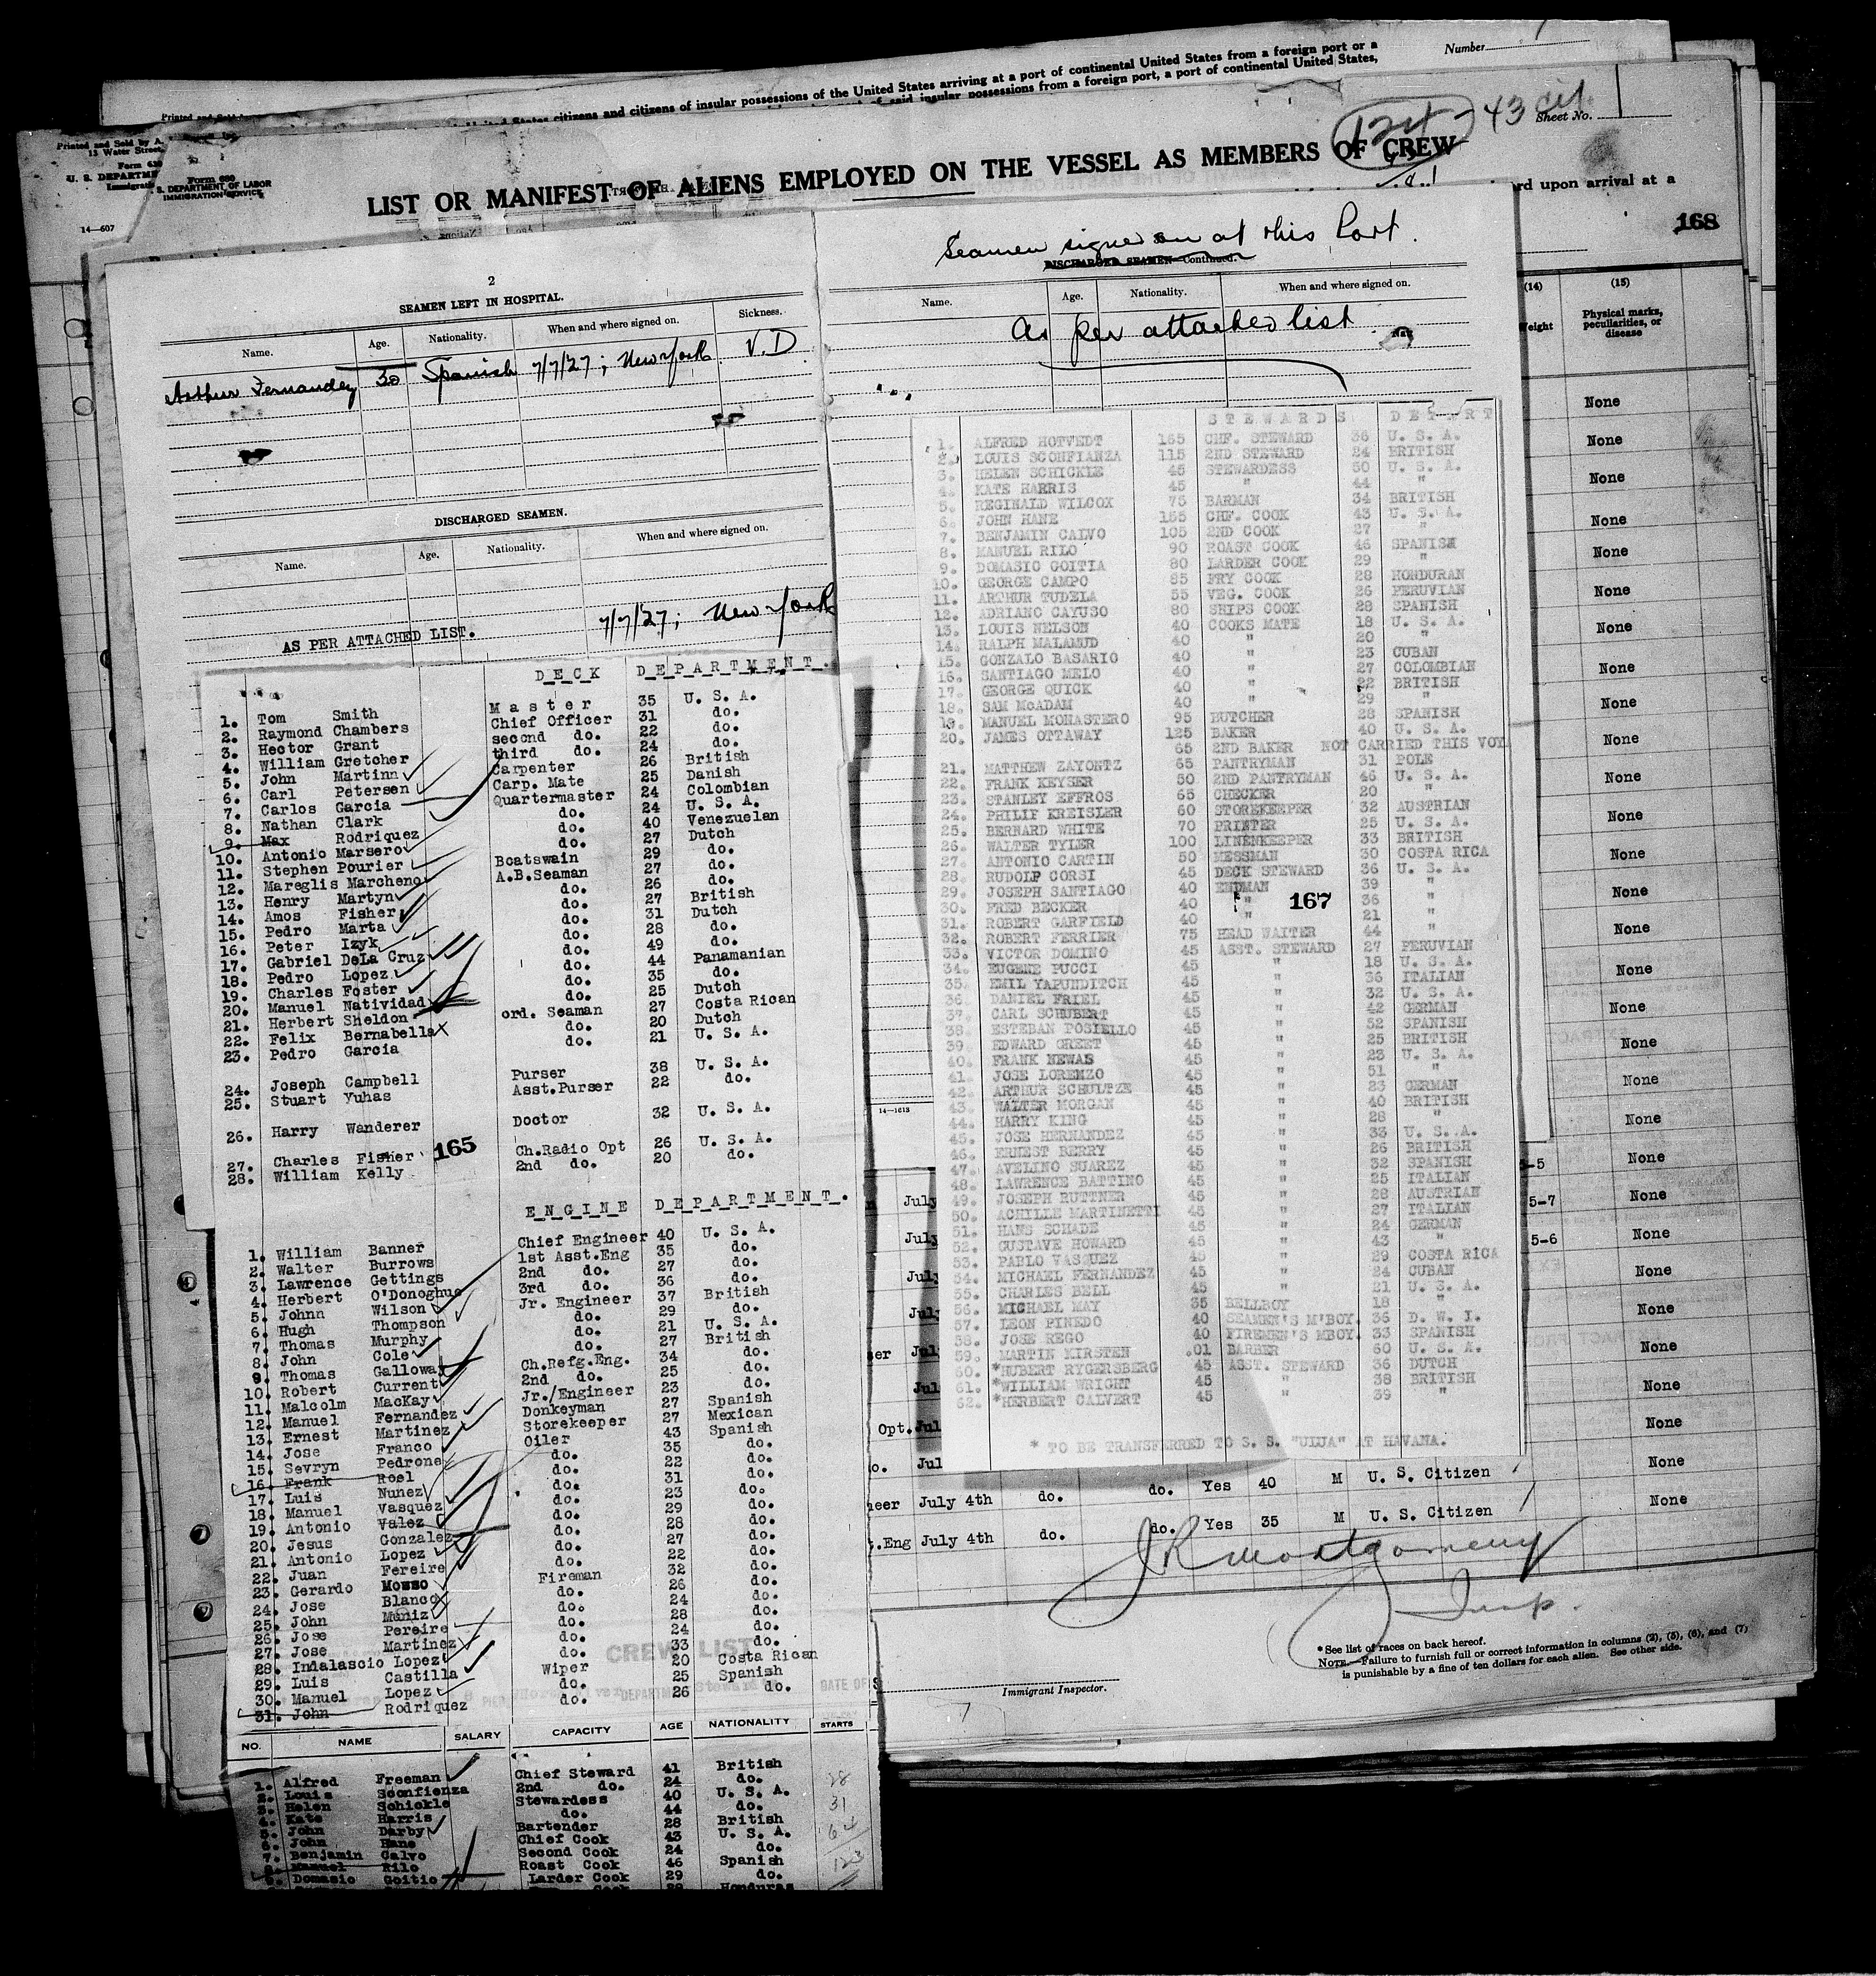 citizens and citizens of insular possessions of the United States arriving at a port of continental United States from a foreign port or a
said insular possessions from a foreign port, a port of continental United States,
Number
Printed and Sold by A.
13 Water Street,
U. S. DEPARTME
Form 680
S. DEPARTMENT OF LABOR
IMMIGRATION SERVICE
14—607
43
Sheet No. 1
LIST OR MANIFEST OF ALIENS EMPLOYED ON THE VESSEL AS MEMBERS OF CREW
rd upon arrival at a
168
2
SEAMEN LEFT IN HOSPITAL.
Name. Age. Nationality. When and where signed on. Sickness.
Arthur Fernandez 30 Spanish 7/7/27; New York V.D
DISCHARGED SEAMEN.
Name. Age. Nationality. When and where signed on.
7/7/27; New York
AS PER ATTACHED LIST.
DECK DEPARTMENT.
1. Tom Smith Master 35 U. S. A.
2. Raymond Chambers Chief Officer 31 do.
3. Hector Grant second do. 22 do.
4. William Gretcher third do. 24 do.
5. John Martinn Carpenter 26 British
6. Carl Petersen Carp. Mate 25 Danish
7. Carlos Garcia Quartermaster 24 Colombian
8. Nathan Clark do. 24 U. S. A.
9. Max Rodriquez do. 40 Venezuelan
10. Antonio Marsero do. 27 Dutch
11. Stephen Pourier Boatswain 29 do.
12. Mareglis Marcheno A.B.Seaman 27 do.
13. Henry Martyn do. 26 do.
14. Amos Fisher do. 27 British
15. Pedro Marta do. 31 Dutch
16. Peter Izyk do. 28 do.
17. Gabriel DeLa Cruz do. 49 do.
18. Pedro Lopez do. 44 Panamanian
19. Charles Foster do. 35 do.
20. Manuel Natividad do. 25 Dutch
21. Herbert Sheldon ord. Seaman 27 Costa Rican
22. Felix Bernabella do. 20 Dutch
23. Pedro Garcia do. 21 U. S. A.
24. Joseph Campbell Purser 38 U. S. A.
25. Stuart Yuhas Asst.Purser 22 do.
26. Harry Wanderer Doctor 32 U. S. A.
165
27. Charles Fisher Ch.Radio Opt 26 U. S. A.
28. William Kelly 2nd do. 20 do.
ENGINE DEPARTMENT.
1. William Banner Chief Engineer 40 U. S. A.
2. Walter Burrows 1st Asst.Eng 35 do.
3. Lawrence Gettings 2nd do. 27 do.
4. Herbert O'Donoghue 3rd do. 36 do.
5. Johnn Wilson Jr. Engineer 37 British
6. Hugh Thompson do. 29 do.
7. Thomas Murphy do. 21 U. S. A.
8. John Cole do. 27 British
9. Thomas Galloway Ch.Refg.Eng. 34 do.
10. Robert Current 2nd do. 25 do.
11. Malcolm MacKay Jr./Engineer 23 do.
12. Manuel Fernandez Donkeyman 27 Spanish
13. Ernest Martinez Storekeeper 27 Mexican
14. Jose Franco Oiler 43 Spanish
15. Sevryn Pedrone do. 35 do.
16. Frank Roel do. 22 do.
17. Luis Nunez do. 31 do.
18. Manuel Vasquez do. 23 do.
19. Antonio Valez do. 29 do.
20. Jesus Gonzalez do. 28 do.
21. Antonio Lopez do. 27 do.
22. Juan Fereire do. 22 do.
23. Gerardo Mousso Fireman 32 do.
24. Jose Blanco do. 26 do.
25. John Muniz do. 24 do.
26. Jose Pereire do. 28 do.
27. Jose Martinez do. 24 do.
28. Indalascio Lopez do. 33 do.
29. Luis Castilla Wiper 20 Costa Rican
30. Manuel Lopez do. 25 Spanish
31. John Rodriquez do. 26 do.
CREW LIST
DEPARTMENT Steward
DATE OF S
NO. NAME SALARY CAPACITY AGE NATIONALITY STARTS
1. Alfred Freeman Chief Steward 41 British
2. Louis Sconfienza 2nd do. 24 do.
3. Helen Schickle Stewardess 40 U. S. A.
4. Kate Harris do. 44 do.
5. John Darby Bartender 28 British
6. John Hane Chief Cook 43 U. S. A.
7. Benjamin Calvo Second Cook 24 do.
8. Manuel Rilo Roast Cook 46 Spanish
9. Domasio Goitio Larder Cook 29 do.
Honduras
28
31
64
123
Seamen signed on at this Port.
DISCHARGED SEAMEN—Continued.
Name. Age. Nationality. When and where signed on.
As per attached list
STEWARDS DEPART
1. ALFRED HOTVEDT 165 CHF. STEWARD 36 U. S. A.
2. LOUIS SCONFIANZA 115 2ND STEWARD 24 BRITISH
3. HELEN SCHICKLE 45 STEWARDESS 50 U. S. A.
4. KATE HARRIS 45 " 44 "
5. REGINALD WILCOX 75 BARMAN 34 BRITISH
6. JOHN HANE 155 CHF. COOK 43 U. S. A.
7. BENJAMIN CALVO 105 2ND COOK 27 "
8. MANUEL RILO 90 ROAST COOK 46 SPANISH
9. DOMASIC GOITIA 80 LARDER COOK 29 "
10. GEORGE CAMPO 85 FRY COOK 28 HONDURAN
11. ARTHUR TUDELA 55 VEG. COOK 26 PERUVIAN
12. ADRIANO CAYUSO 80 SHIPS COOK 28 SPANISH
13. LOUIS NELSON 40 COOKS MATE 18 U. S. A.
14. RALPH MALAMUD 40 " 20 "
15. GONZALO BASARIO 40 " 23 CUBAN
16. SANTIAGO MELO 40 " 27 COLOMBIAN
17. GEORGE QUICK 40 " 22 BRITISH
18. SAM McADAM 40 " 29 "
19. MANUEL MONASTERO 95 BUTCHER 28 SPANISH
20. JAMES OTTAWAY 125 BAKER 40 U. S. A.
65 2ND BAKER NOT CARRIED THIS VOY
21. MATTHEW ZAYONTZ 65 PANTRYMAN 31 POLE
22. FRANK KEYSER 50 2ND PANTRYMAN 46 U. S. A.
23. STANLEY EFFROS 65 CHECKER 20 "
24. PHILIP KREISLER 60 STOREKEEPER 32 AUSTRIAN
25. BERNARD WHITE 70 PRINTER 25 U. S. A.
26. WALTER TYLER 100 LINENKEEPER 33 BRITISH
27. ANTONIO CARTIN 50 MESSMAN 30 COSTA RICA
28. RUDOLF CORSI 45 DECK STEWARD 36 U. S. A.
29. JOSEPH SANTIAGO 40 ENDMAN 39 "
30. FRED BECKER 40 " 36 "
167
31. ROBERT GARFIELD 40 " 21 "
32. ROBERT FERRIER 75 HEAD WAITER 44 "
33. VICTOR DOMINO 45 ASST. STEWARD 27 PERUVIAN
34. EUGENE PUCCI 45 " 18 U. S. A.
35. EMIL YAPUNDITCH 45 " 36 ITALIAN
36. DANIEL FRIEL 45 " 32 U. S. A.
37. CARL SCHUBERT 45 " 42 GERMAN
38. ESTEBAN POSIELLO 45 " 52 SPANISH
39. EDWARD GREET 45 " 25 BRITISH
40. FRANK NEWAS 45 " 23 U. S. A.
41. JOSE LORENZO 45 " 51 "
42. ARTHUR SCHULTZE 45 " 23 GERMAN
43. WALTER MORGAN 45 " 40 BRITISH
44. HARRY KING 45 " 28 "
45. JOSE HERNANDEZ 45 " 33 U. S. A.
46. ERNEST BERRY 45 " 26 BRITISH
47. AVELINO SUAREZ 45 " 32 SPANISH
48. LAWRENCE BATTINO 45 " 25 ITALIAN
49. JOSEPH RUTTNER 45 " 28 AUSTRIAN
50. ACHILLE MARTINETTI 45 " 27 ITALIAN
51. HANS SCHADE 45 " 24 GERMAN
52. GUSTAVE HOWARD 45 " 43 "
53. PABLO VASQUEZ 45 " 29 COSTA RICA
54. MICHAEL FERNANDEZ 45 " 24 CUBAN
55. CHARLES BELL 45 " 21 U. S. A.
56. MICHAEL MAY 35 BELLBOY 18 "
57. LEON PINEDO 40 SEAMEN'S M'BOY. 36 D. W. I.
58. JOSE REGO 40 FIREMEN'S MBOY. 33 SPANISH
59. MARTIN KIRSTEN .01 BARBER 60 U. S. A.
60. *HUBERT RYGERSBERG 45 ASST. STEWARD 36 DUTCH
61. *WILLIAM WRIGHT 45 " 38 BRITISH
62. *HERBERT CALVERT 45 " 39 "
* TO BE TRANSFERRED TO S. S. "ULUA" AT HAVANA.
(14) (15)
Weight Physical marks, peculiarities, or disease
None
None
None
None
None
None
None
None
None
None
None
None
None
None
None
None
None
None
None
None
5-5 None
5-7 None
5-6 None
None
None
None
None
None
None
14—1613
July
July
July
July
July
Jul
Opt. Jul
o. Jul
neer July 4th do. do. Yes 40 M U. S. Citizen
None
t.Eng July 4th do. do. Yes 35 M U. S. Citizen
J R Montgomery
Insp.
Immigrant Inspector.
*See list of races on back hereof.
NOTE.—Failure to furnish full or correct information in columns (2), (5), (6), and (7)
is punishable by a fine of ten dollars for each alien. See other side.